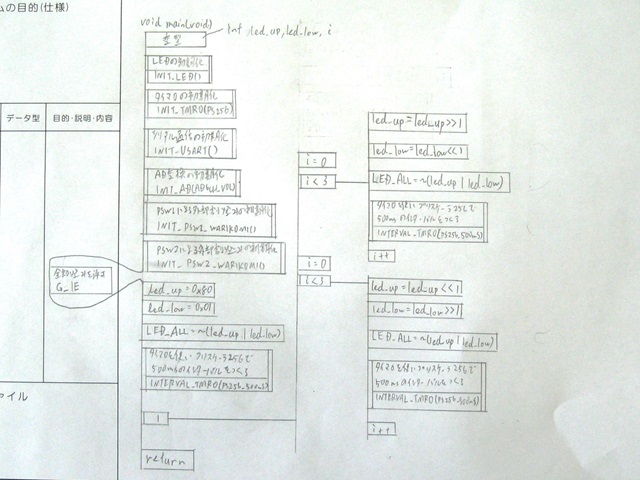 ムの目的(仕様)
データ型
目的・説明・内容
ァイル
void main(void)
宣言
int led_up, led_low, i
LEDの初期化
INIT_LED()
タイマ0の初期化
INIT_TMR0(PS256)
シリアル通信の初期化
INIT_USART()
AD変換の初期化
INIT_AD(AD
VOL)
PSW1による外部割り込みの初期化
INIT_PSW1_WARIKOMI()
PSW2による外部割り込みの初期化
INIT_PSW2_WARIKOMI()
全割り込みを許可
G_IE
led_up = 0x80
led_low = 0x01
LED_ALL = ~(led_up | led_low)
タイマ0を使いプリスケーラ256で
500msのインターバルをつくる
INTERVAL_TMR0(PS256,500ms)
1
return
i = 0
i < 3
led_up = led_up >> 1
led_low = led_low << 1
LED_ALL = ~(led_up | led_low)
タイマ0を使いプリスケーラ256で
500msのインターバルをつくる
INTERVAL_TMR0(PS256,500ms)
i++
i = 0
i < 3
led_up = led_up << 1
led_low = led_low >> 1
LED_ALL = ~(led_up | led_low)
タイマ0を使いプリスケーラ256で
500msのインターバルをつくる
INTERVAL_TMR0(PS256,500ms)
i++